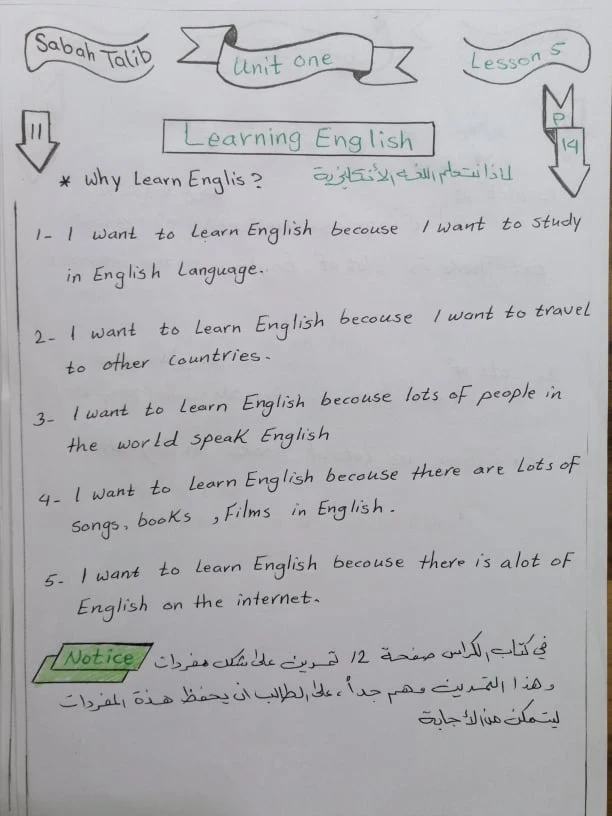 Sabah Talib
Unit one
Lesson 5
11
P
14
Learning English
* Why Learn Englis?
لماذا نتعلم اللغة الأنكليزية
1- I want to Learn English becouse I want to study
in English Language.
2- I want to Learn English becouse I want to travel
to other countries.
3- I want to Learn English becouse lots of people in
the world speak English
4- I want to Learn English becouse there are Lots of
songs, books , Films in English.
5- I want to Learn English becouse there is alot of
English on the internet.
Notice
في كتاب الكراس صفحة 12 تمرين على شكل مفردات
وهذا التمرين مهم جداً، على الطالب ان يحفظ هذة المفردات
ليتمكن من الأجابة